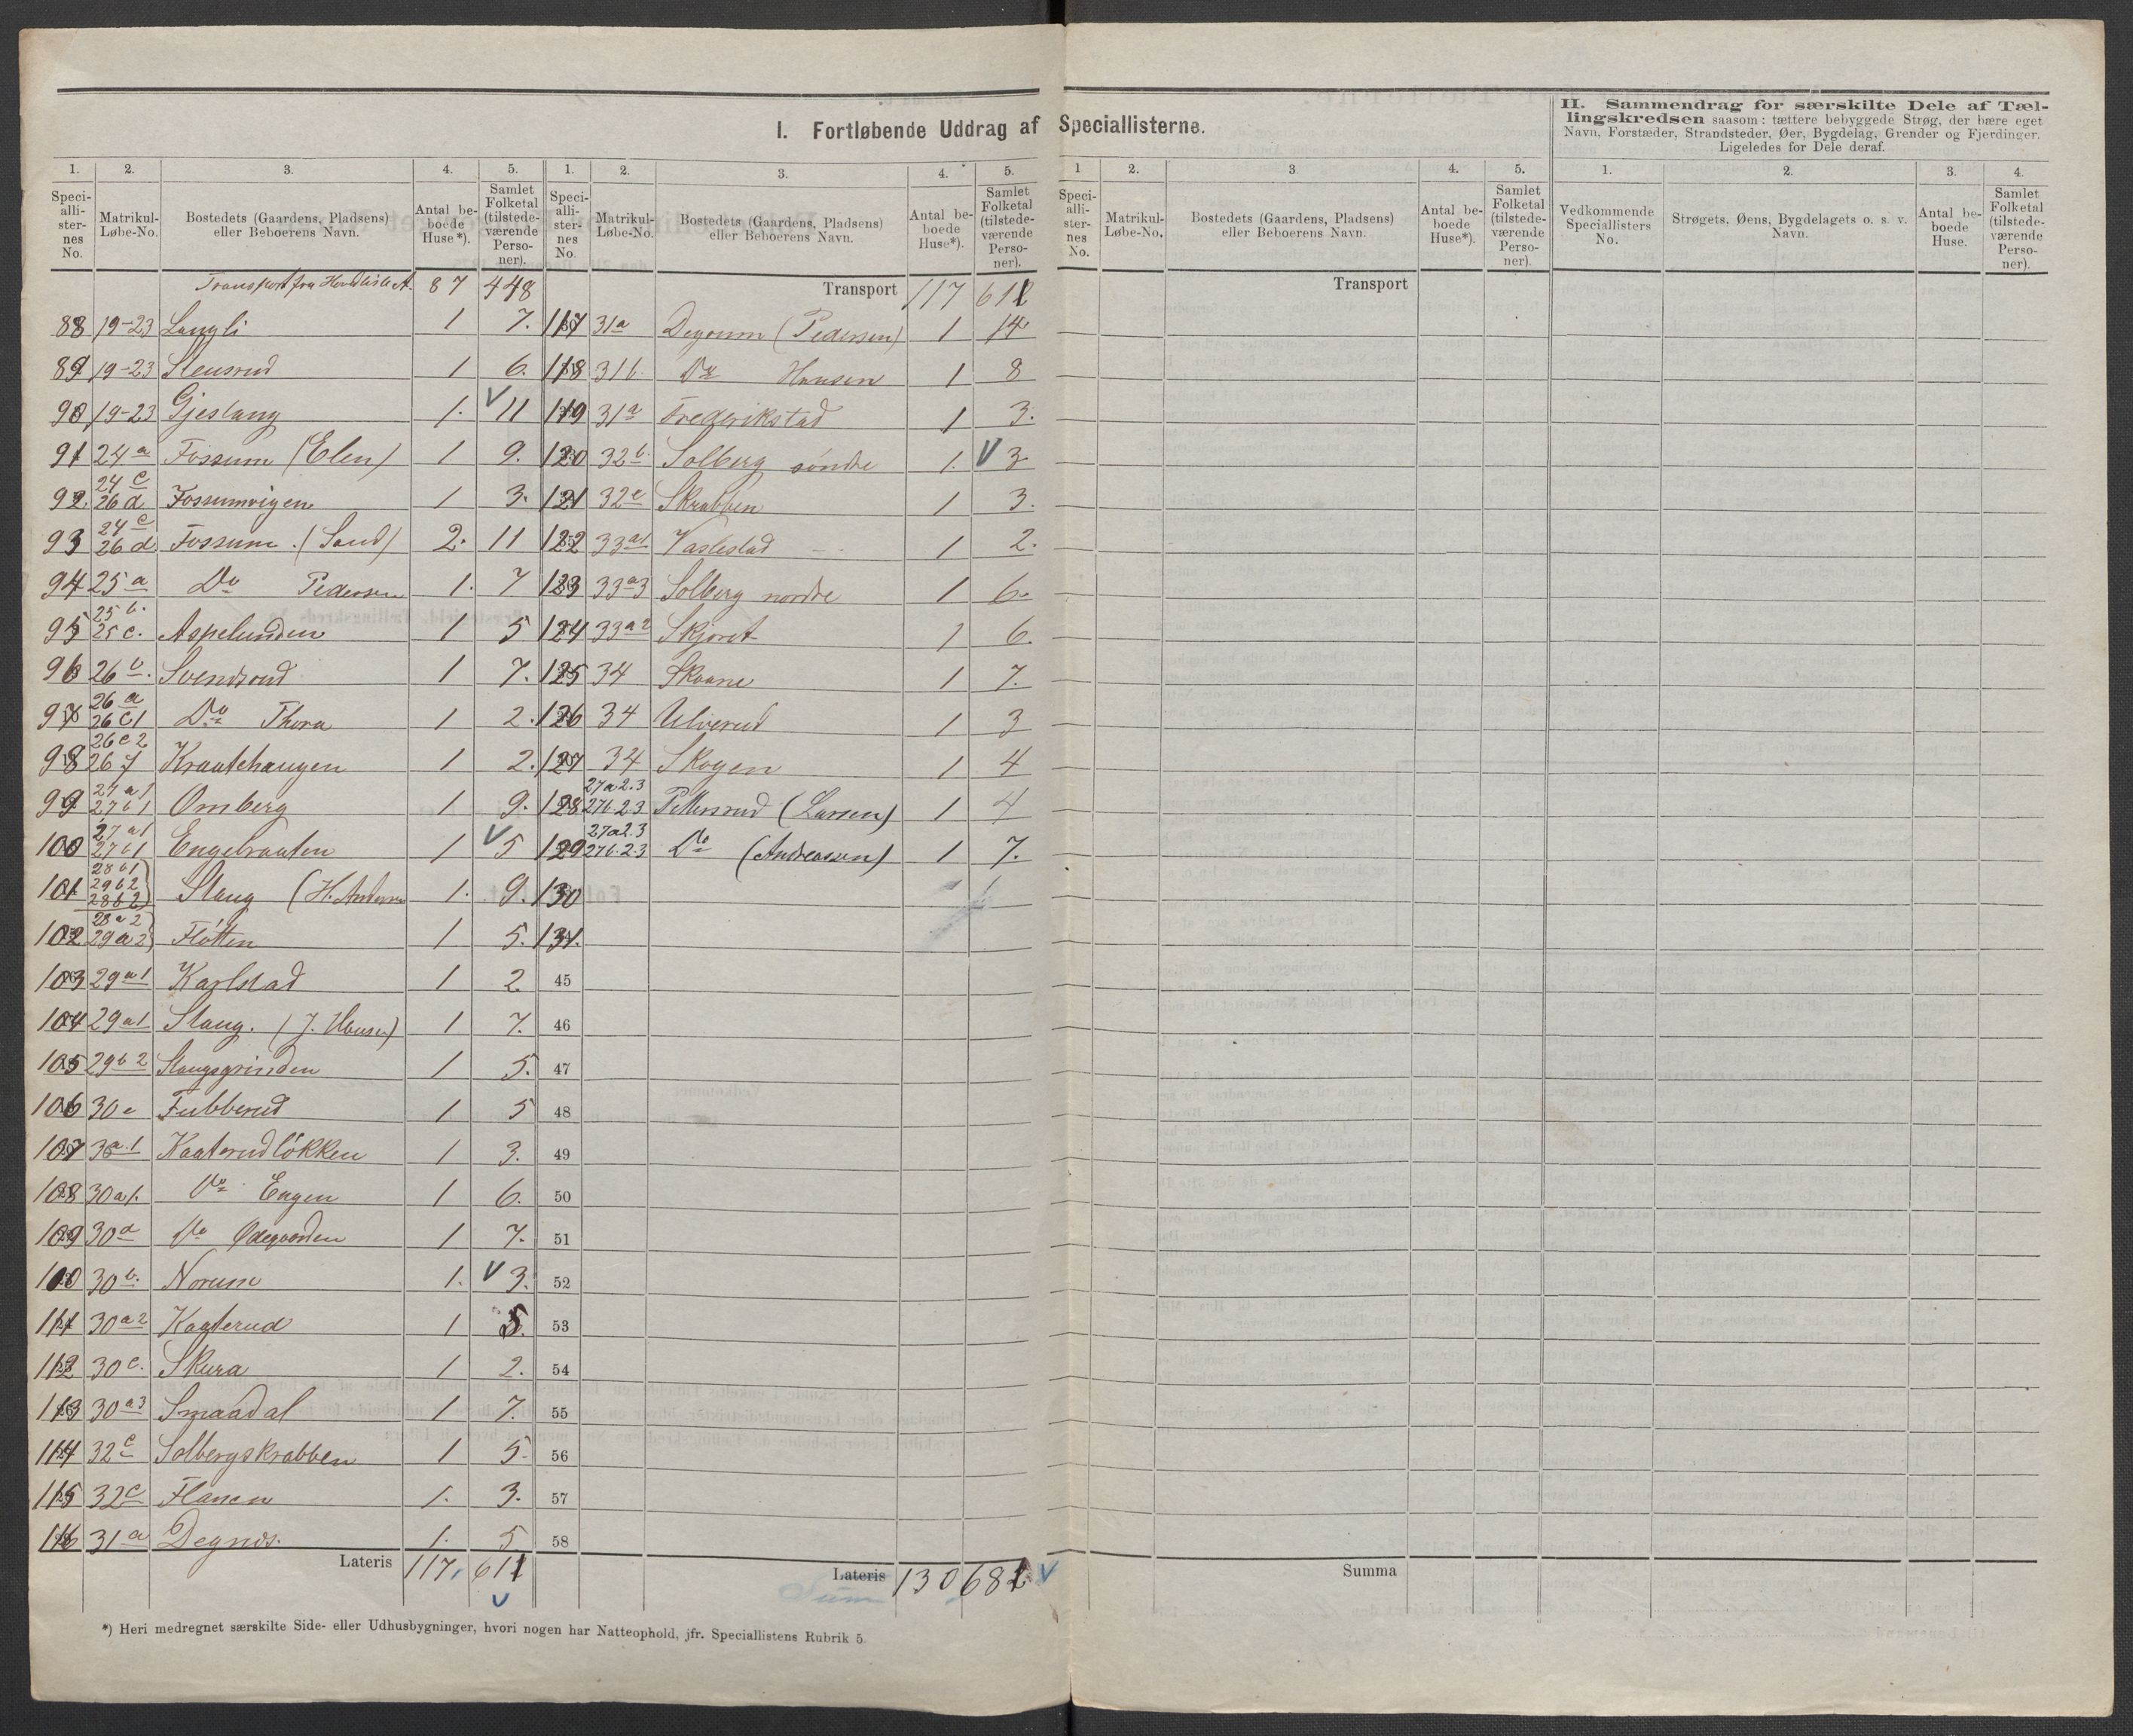 I. Fortløbende Uddrag af Speciallisterne.
II. Sammendrag for særskilte Dele af Tæl-
lingskredsen saasom: tættere bebyggede Strøg, der bære eget
Navn, Forstæder, Strandsteder, Øer, Bygdelag, Grender og Fjerdinger.
Ligeledes for Dele deraf.
1. 2. 3. 4. 5.
Speciallisternes No. Matrikul-Løbe-No. Bostedets (Gaardens, Pladsens) eller Beboerens Navn. Antal beboede Huse*). Samlet Folketal (tilstedeværende Personer).
Transport fra Hovedliste A. 87 448
88 19-23 Langli 1 7.
89 19-23 Stensrud 1 6.
90 19-23 Gjeslang 1. V 11
91 24a Fossum (Elen) 1 9.
92. 24c 26d Fossumvigen 1 3.
93 24c 26d Fossum. (Sand) 2. 11
94 25a Do Pedersen 1. 7
95 25b. 25c. Aspelunden 1 5
96 26b. Svendsrud 1 7.
97 26a 26c1 Do Thora 1 2.
98 26c2 26f Kraatehaugen 1 2.
99 27a1 27b1 Omberg 1 9.
100 27a1 27b1 Engebraaten 1 V 5
101 28b1 29b2 28b2 Slang (H. Anders 1. 9.
102 28a2 29a2 Fløtten 1 5.
103 29a1 Karlstad 1 2
104 29a1 Slang. (J. Hansen) 1 7.
105 29b2 Slangsgrinden 1 5.
106 30e Fubberud 1 5
107 30a1 Kaaterudløkken 1 3.
108 30a1. Do Engen 1 6.
109 30d Do Ødegaarden 1 7.
110 30b. Norum 1. V 3.
111 30a2 Kaaterud 1 5.
112 30c. Skura 1 2.
113 30a3 Smaadal 1 7.
114 32c Solbergskrabben 1 5.
115 32c Flanen 1. 3.
116 31a Degnæs. 1. 5
Lateris 117. 611
1. 2. 3. 4. 5.
Speciallisternes No. Matrikul-Løbe-No. Bostedets (Gaardens, Pladsens) eller Beboerens Navn. Antal beboede Huse*). Samlet Folketal (tilstedeværende Personer).
Transport 117 611
117 31a Degnum (Pedersen) 1 14
118 31b. Do Hansen 1 8
119 31a Frederikstad 1 3.
120 32b. Solberg søndre 1. V 3
121 32c Skrabben 1 3.
122 33a1 Vaslestad 1 2.
123 33a3 Solberg nordre 1 6.
124 33a2 Skjøret 1 6.
125 34 Skaane 1 7.
126 34 Ulverud 1 3
127 34 Skogen 1 4
128 27a2.3 27b2.3 Pettersrud (Larsen) 1 4
129 27a2.3 27b.2.3 Do (Andreassen) 1 7.
130
131.
45
46
47
48
49
50
51
52
53
54
55
56
57
58
Lateris Sum 130 681 V
1 2. 3 4. 5.
Speciallisternes No. Matrikul-Løbe-No. Bostedets (Gaardens, Pladsens) eller Beboerens Navn. Antal beboede Huse*). Samlet Folketal (tilstedeværende Personer).
Transport
Summa
1. 2. 3. 4.
Vedkommende Speciallisters No. Strøgets, Øens, Bygdelagets o. s. v. Navn. Antal beboede Huse. Samlet Folketal (tilstedeværende Personer).
*) Heri medregnet særskilte Side- eller Udhusbygninger, hvori nogen har Natteophold, jfr. Speciallistens Rubrik 5.